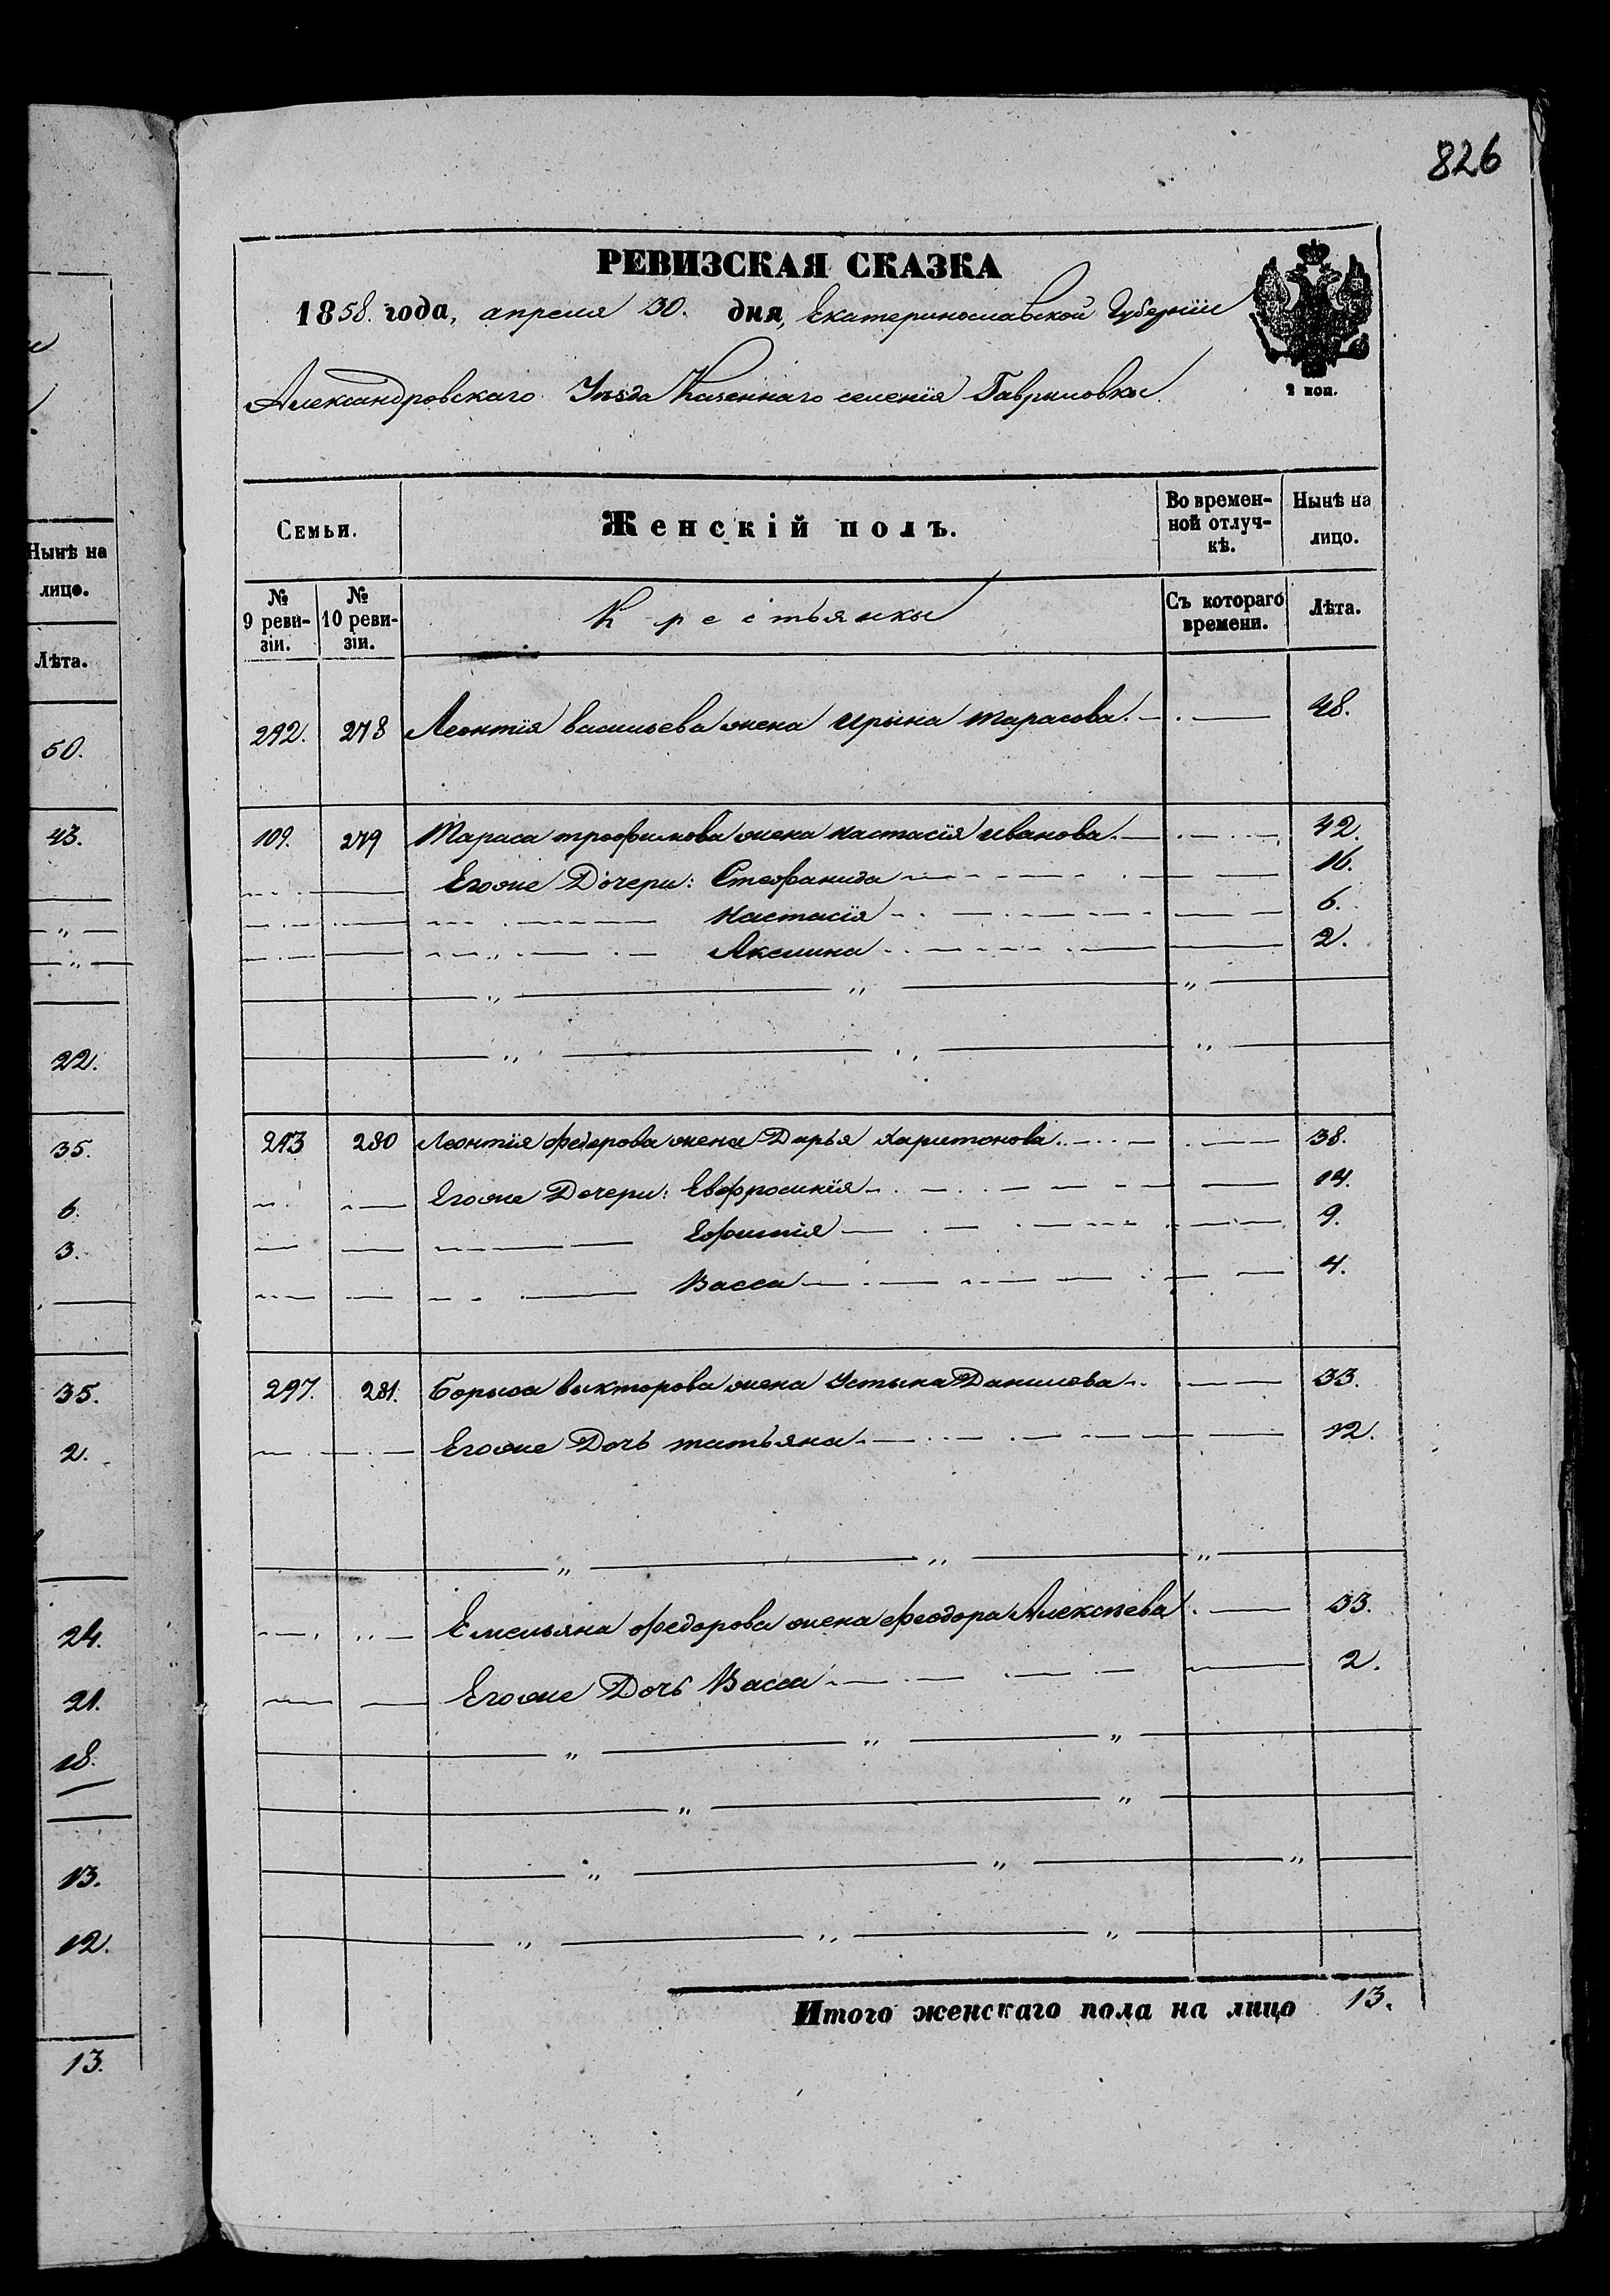 826
РЕВИЗСКАЯ СКАЗКА
1858. года, апреля 30. дня, Екатеринославской Губернiи
Александровскаго Уѣзда Казеннаго селенiя Гавриловки
2 коп.
Семьи. Женскiй полъ. Во времен-ной отлуч-кѣ. Нынѣ на лицо.
№ 9 реви-зiи. № 10 реви-зiи. Крестьянки Съ котораго времени. Лѣта.
292. 278 Леонтiя васильева жена Ирына тарасова. 48.
109. 279 Тараса трофимова жена настасiя иванова. 42.
Егоже Дочери: Стефанида 16.
Настасiя 6.
Акилина 2.
293 280 Леонтiя федорова жена Дарья харитонова. 38.
Егоже Дочери: Евфросинiя 14.
Ефимiя 9.
Васса 4.
297. 281. Борыса викторова жена Устына Данилова. 33.
Егоже Дочь татьяна. 12.
Емельяна федорова жена феодора Алексѣева 33.
Егоже Дочь Васса 2.
Итого женскаго пола на лицо 13.
Нынѣ на
лицо.
Лѣта.
50.
43.
22.
35.
6.
3.
35.
2.
24.
21.
18.
13.
12.
13.